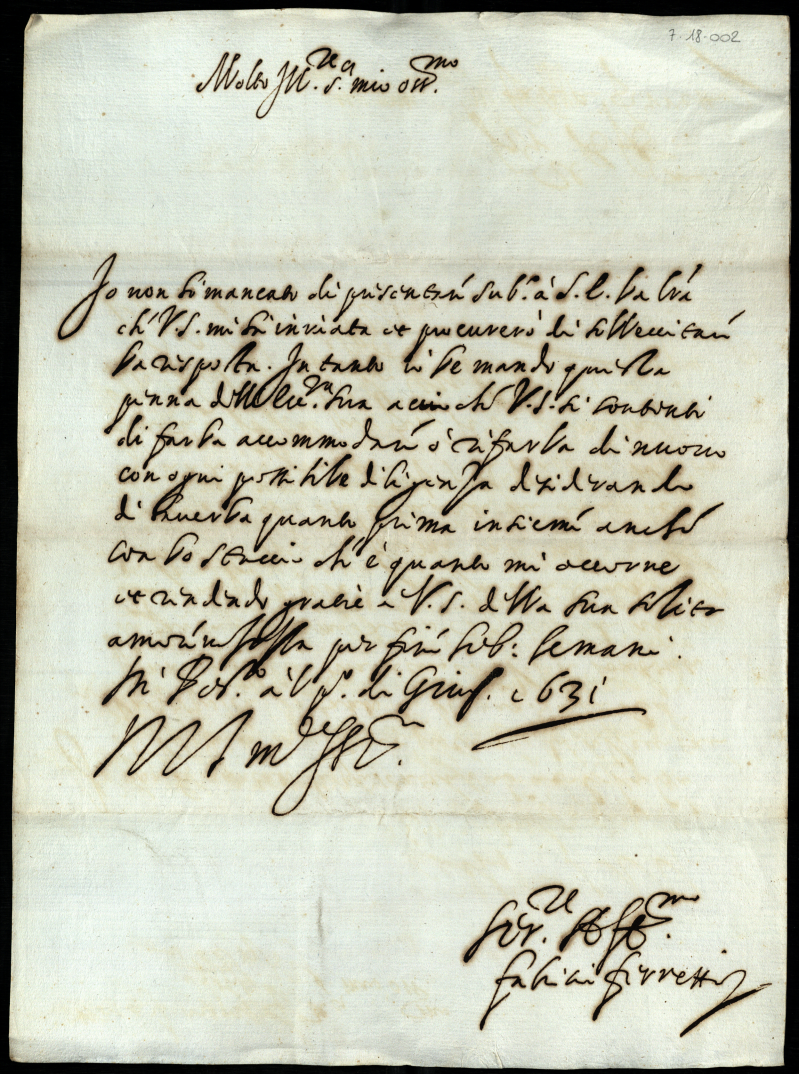 7-18-002
Molto Ill.re s.r mio oss.mo
Io non hò mancato di presentare sub.o à S. E. la lr̃a
che V. S. mi hà inviata et procurerò di sollecitare
la risposta. In tanto io le mando questa
penna dell'Ecc.za sua acciò che V. S. si contenti
di farla accommodare ò rifarla di nuovo
con ogni possibile diligenza desiderando
di haverla quanto prima insieme anche
con lo stuccio che è quanto mi occorre
et rendendo gratie a V. S. della sua solita
amorevolezza per fine le b: le mani.
di Giug. 1631
Ser.re Aff.mo
Ferretti